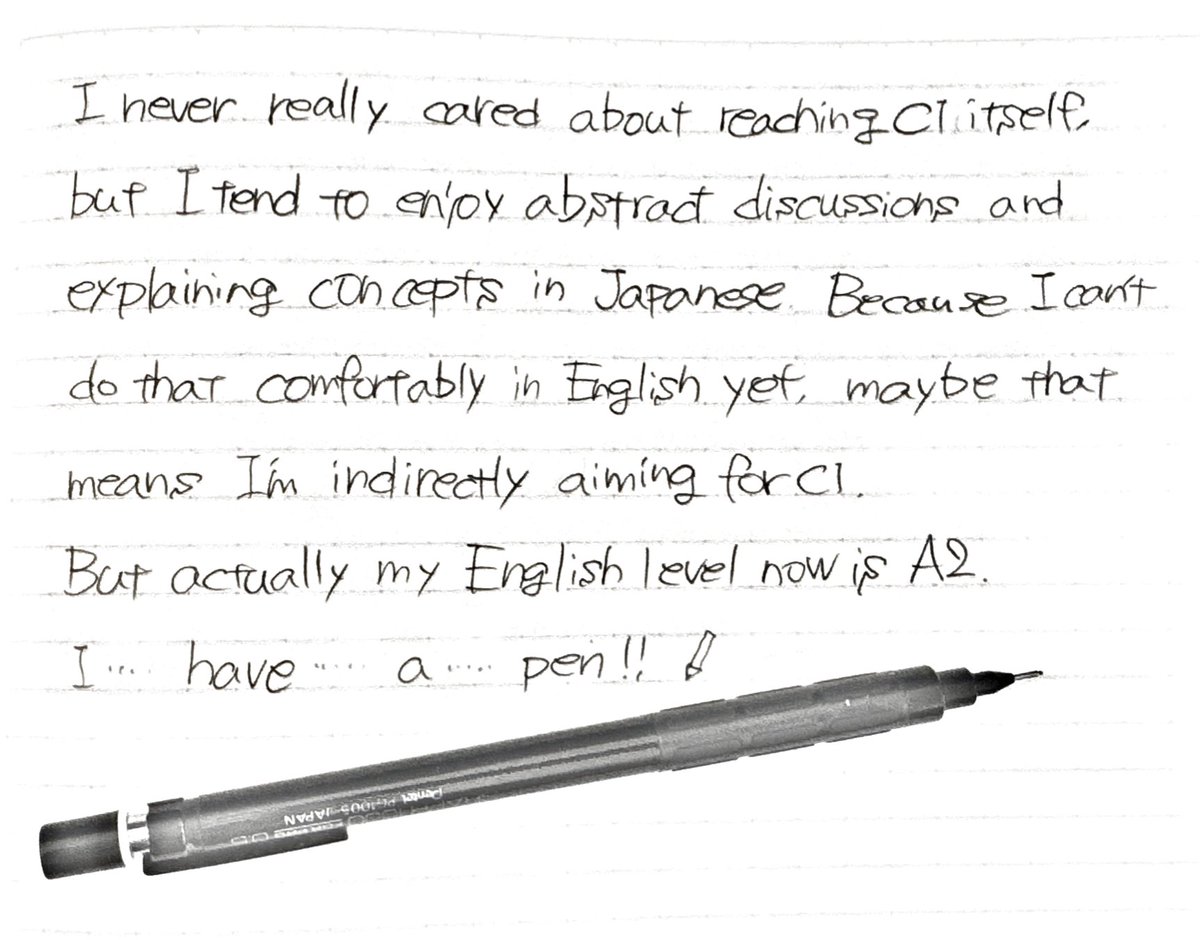 I never really cared about reaching C1 itself,
but I tend to enjoy abstract discussions and
explaining concepts in Japanese. Because I can't
do that comfortably in English yet, maybe that
means I'm indirectly aiming for C1.
But actually my English level now is A2.
I .... have ..... a ..... pen!!
Pentel PG1005 JAPAN
0.5